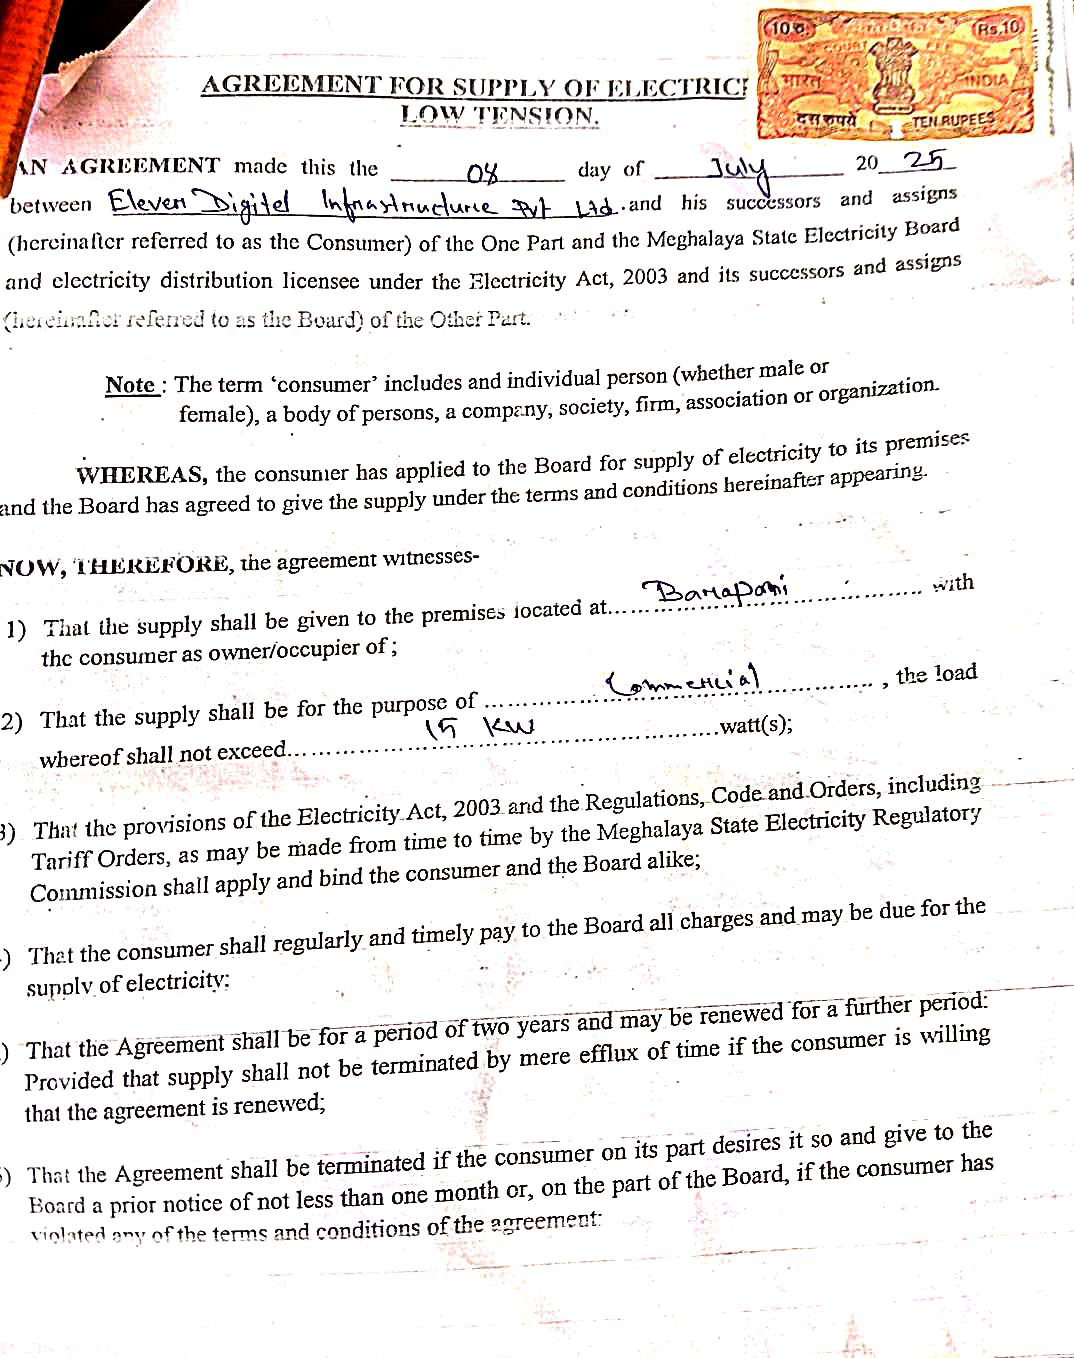 10रु.
Rs.10
COURT FEE
भारत
INDIA
दस रुपये
TEN RUPEES
AGREEMENT FOR SUPPLY OF ELECTRICI
LOW TENSION.
AN AGREEMENT made this the 08 day of July 20 25
between Eleven Digitel Infrastructure Pvt Ltd. and his successors and assigns
(hereinafter referred to as the Consumer) of the One Part and the Meghalaya State Electricity Board
and electricity distribution licensee under the Electricity Act, 2003 and its successors and assigns
(hereinafter referred to as the Board) of the Other Part.
Note : The term ‘consumer’ includes and individual person (whether male or
female), a body of persons, a company, society, firm, association or organization.
WHEREAS, the consumer has applied to the Board for supply of electricity to its premises
and the Board has agreed to give the supply under the terms and conditions hereinafter appearing.
NOW, THEREFORE, the agreement witnesses-
1) That the supply shall be given to the premises located at...Barapani... with
the consumer as owner/occupier of ;
2) That the supply shall be for the purpose of ...Commercial... , the load
whereof shall not exceed...15 KW...watt(s);
3) That the provisions of the Electricity Act, 2003 and the Regulations, Code and Orders, including
Tariff Orders, as may be made from time to time by the Meghalaya State Electricity Regulatory
Commission shall apply and bind the consumer and the Board alike;
) That the consumer shall regularly and timely pay to the Board all charges and may be due for the
supply of electricity;
) That the Agreement shall be for a period of two years and may be renewed for a further period:
Provided that supply shall not be terminated by mere efflux of time if the consumer is willing
that the agreement is renewed;
) That the Agreement shall be terminated if the consumer on its part desires it so and give to the
Board a prior notice of not less than one month or, on the part of the Board, if the consumer has
violated any of the terms and conditions of the agreement: